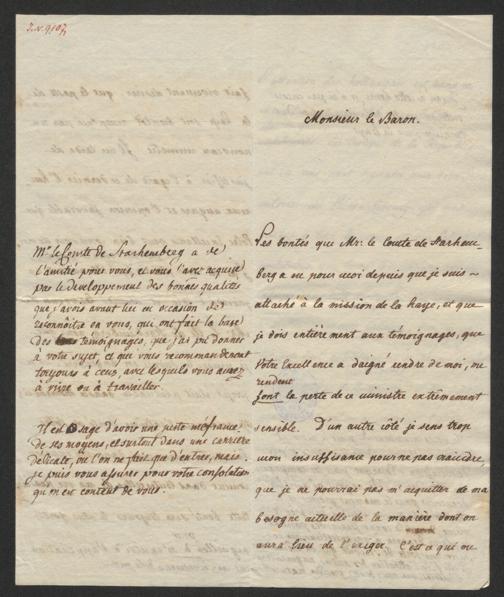 J.N. 9107
Monsieur le Baron.
Mr. le Comte de Starhemberg a de
l'amitié pour vous, et vous l'avez acquise
par le developpement des bonnes qualités
que j'avois avant lui eu occasion de
reconnoître en vous, qui ont fait la base
des témoignages, que j'ai pu donner
à votre sujet, et qui vous recommanderont
toujours à ceux, avec lesquels vous aurez
à vivre ou à travailler.
Il est sage d'avoir une juste méfiance
de ses moyens, et surtout dans une carriere
délicate, où l'on ne fait que d'entrer, mais
je puis vous assurer pour votre consolation
qu'on est content de vous.
Les bontés que Mr: le Comte de Starhem-
berg a eu pour moi depuis que je suis
attaché à la mission de la Haye, et que
je dois entièrement aux témoignages, que
Votre Excellence a daigné rendre de moi, me
rendent
font la perte de ce ministre extrèmement
sensible. D'un autre côté je sens trop
mon insuffisance pour ne pas craindre,
que je ne pourrai pas m'acquitter de ma
besogne actuelle de la manière dont on
aura lieu de l'exiger. C'est ce qui me